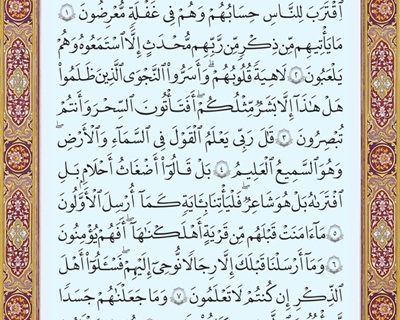 ٱقْتَرَبَ لِلنَّاسِ حِسَابُهُمْ وَهُمْ فِى غَفْلَةٍ مُّعْرِضُونَ ١
مَا يَأْتِيهِم مِّن ذِكْرٍ مِّن رَّبِّهِم مُّحْدَثٍ إِلَّا ٱسْتَمَعُوهُ وَهُمْ
يَلْعَبُونَ ٢ لَاهِيَةً قُلُوبُهُمْ ۗ وَأَسَرُّوا۟ ٱلنَّجْوَى ٱلَّذِينَ ظَلَمُوا۟
هَلْ هَٰذَآ إِلَّا بَشَرٌ مِّثْلُكُمْ ۖ أَفَتَأْتُونَ ٱلسِّحْرَ وَأَنتُمْ
تُبْصِرُونَ ٣ قَالَ رَبِّى يَعْلَمُ ٱلْقَوْلَ فِى ٱلسَّمَآءِ وَٱلْأَرْضِ ۖ
وَهُوَ ٱلسَّمِيعُ ٱلْعَلِيمُ ٤ بَلْ قَالُوٓا۟ أَضْغَٰثُ أَحْلَٰمٍۭ بَلِ
ٱفْتَرَىٰهُ بَلْ هُوَ شَاعِرٌ فَلْيَأْتِنَا بِـَٔايَةٍ كَمَآ أُرْسِلَ ٱلْأَوَّلُونَ
٥ مَآ ءَامَنَتْ قَبْلَهُم مِّن قَرْيَةٍ أَهْلَكْنَٰهَآ ۖ أَفَهُمْ يُؤْمِنُونَ
٦ وَمَآ أَرْسَلْنَا قَبْلَكَ إِلَّا رِجَالًا نُّوحِىٓ إِلَيْهِمْ ۖ فَسْـَٔلُوٓا۟ أَهْلَ
ٱلذِّكْرِ إِن كُنتُمْ لَا تَعْلَمُونَ ٧ وَمَا جَعَلْنَٰهُمْ جَسَدًا